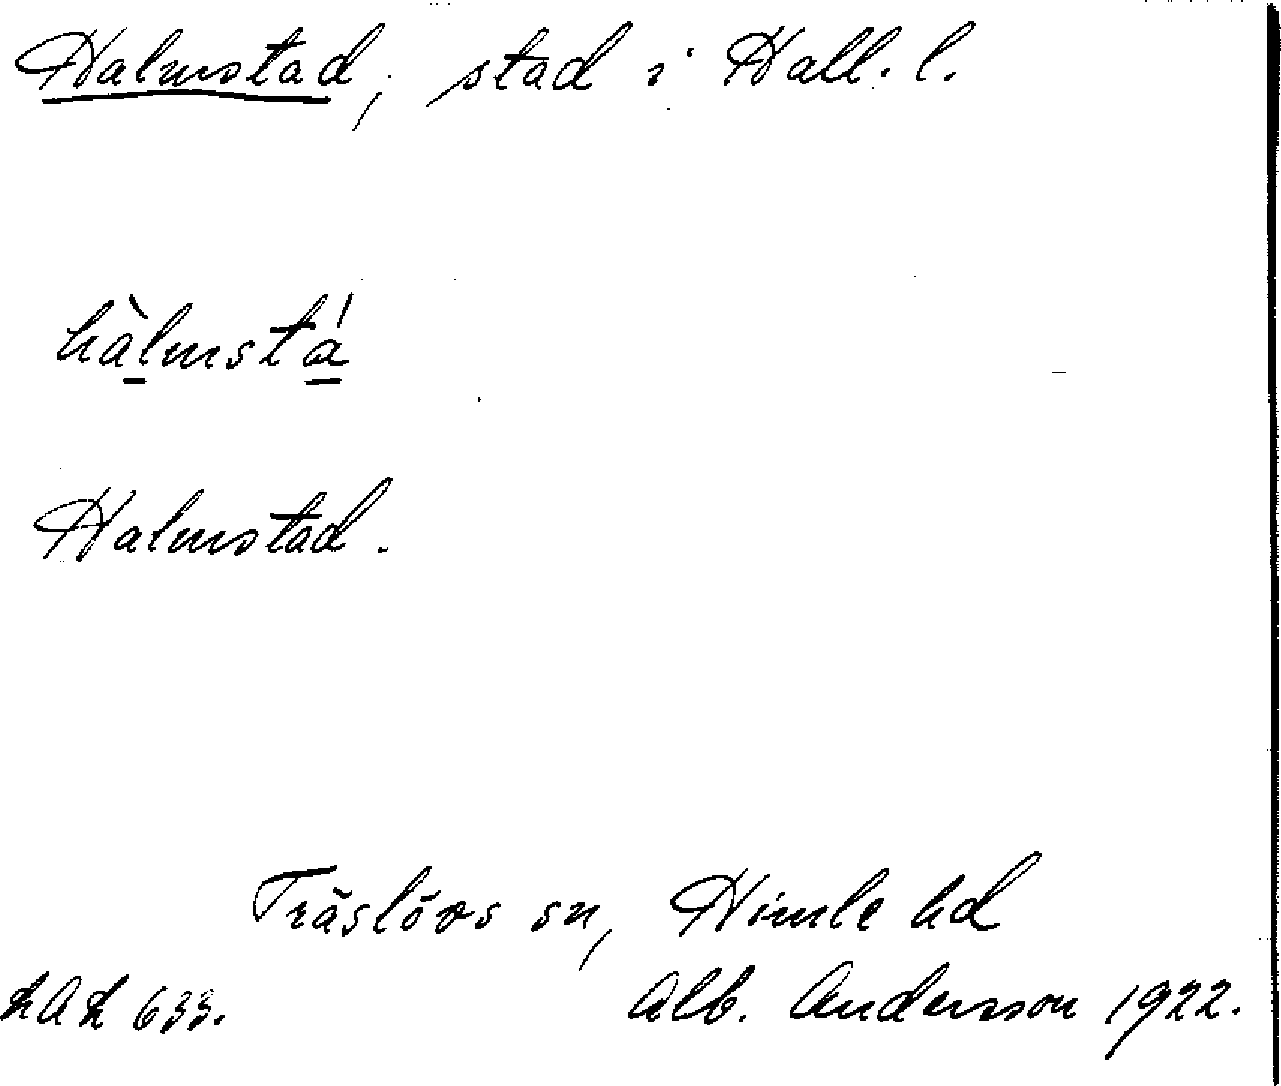 Halmstad, stad i Hall. l.
hàlmstá
Halmstad.
Träslövs sn, Himle hd
Alb. Andersson 1922.